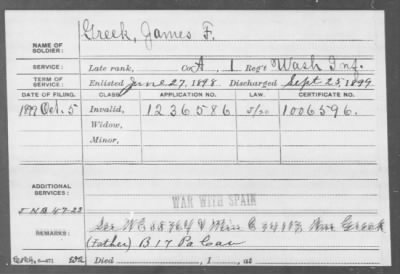 Greek, James F.
NAME OF
SOLDIER:
SERVICE: Late rank, Co. A, 1 Reg't Wash Inf.
TERM OF
SERVICE: Enlisted June 27, 1898 Discharged Sept 25, 1899
DATE OF FILING. CLASS. APPLICATION NO. LAW. CERTIFICATE NO.
1899 Oct. 5 Invalid, 1236586 1006596.
Widow,
Minor,
ADDITIONAL
SERVICES:
WAR WITH SPAIN
See WC & Min C Wm Greek
REMARKS: (Father) B 17 Pa Cav
Died , 1 , at